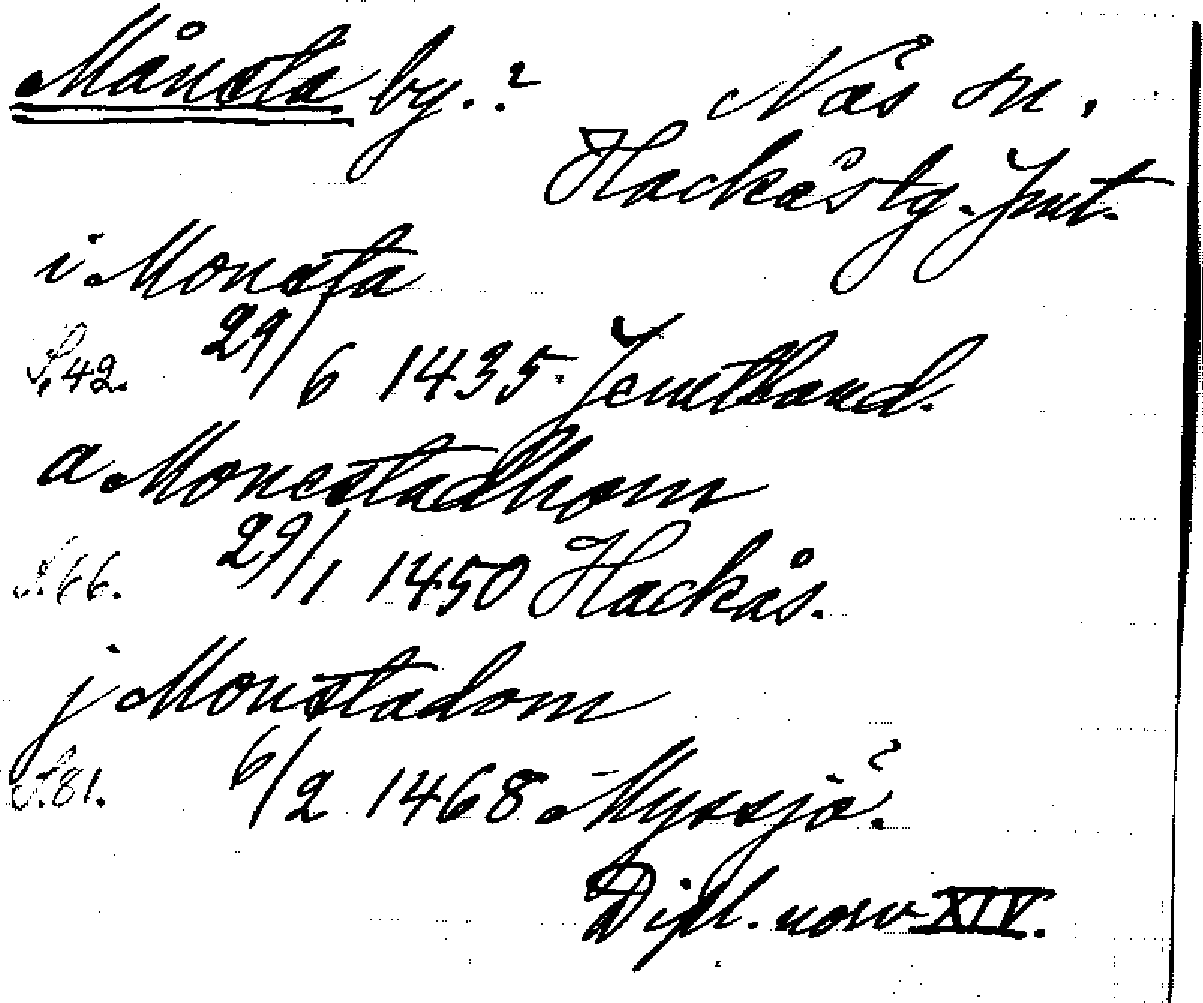 Månsta by.? Näs sn.
Hackås tg. Jmt.
i Monsta
S. 42. 29/6 1435. Jemtland.
a Monestadhom
S. 66. 29/1 1450 Hackås.
j Monstadom
S. 81. 6/2 1468 Myssjö.
Dipl. norv XIV.